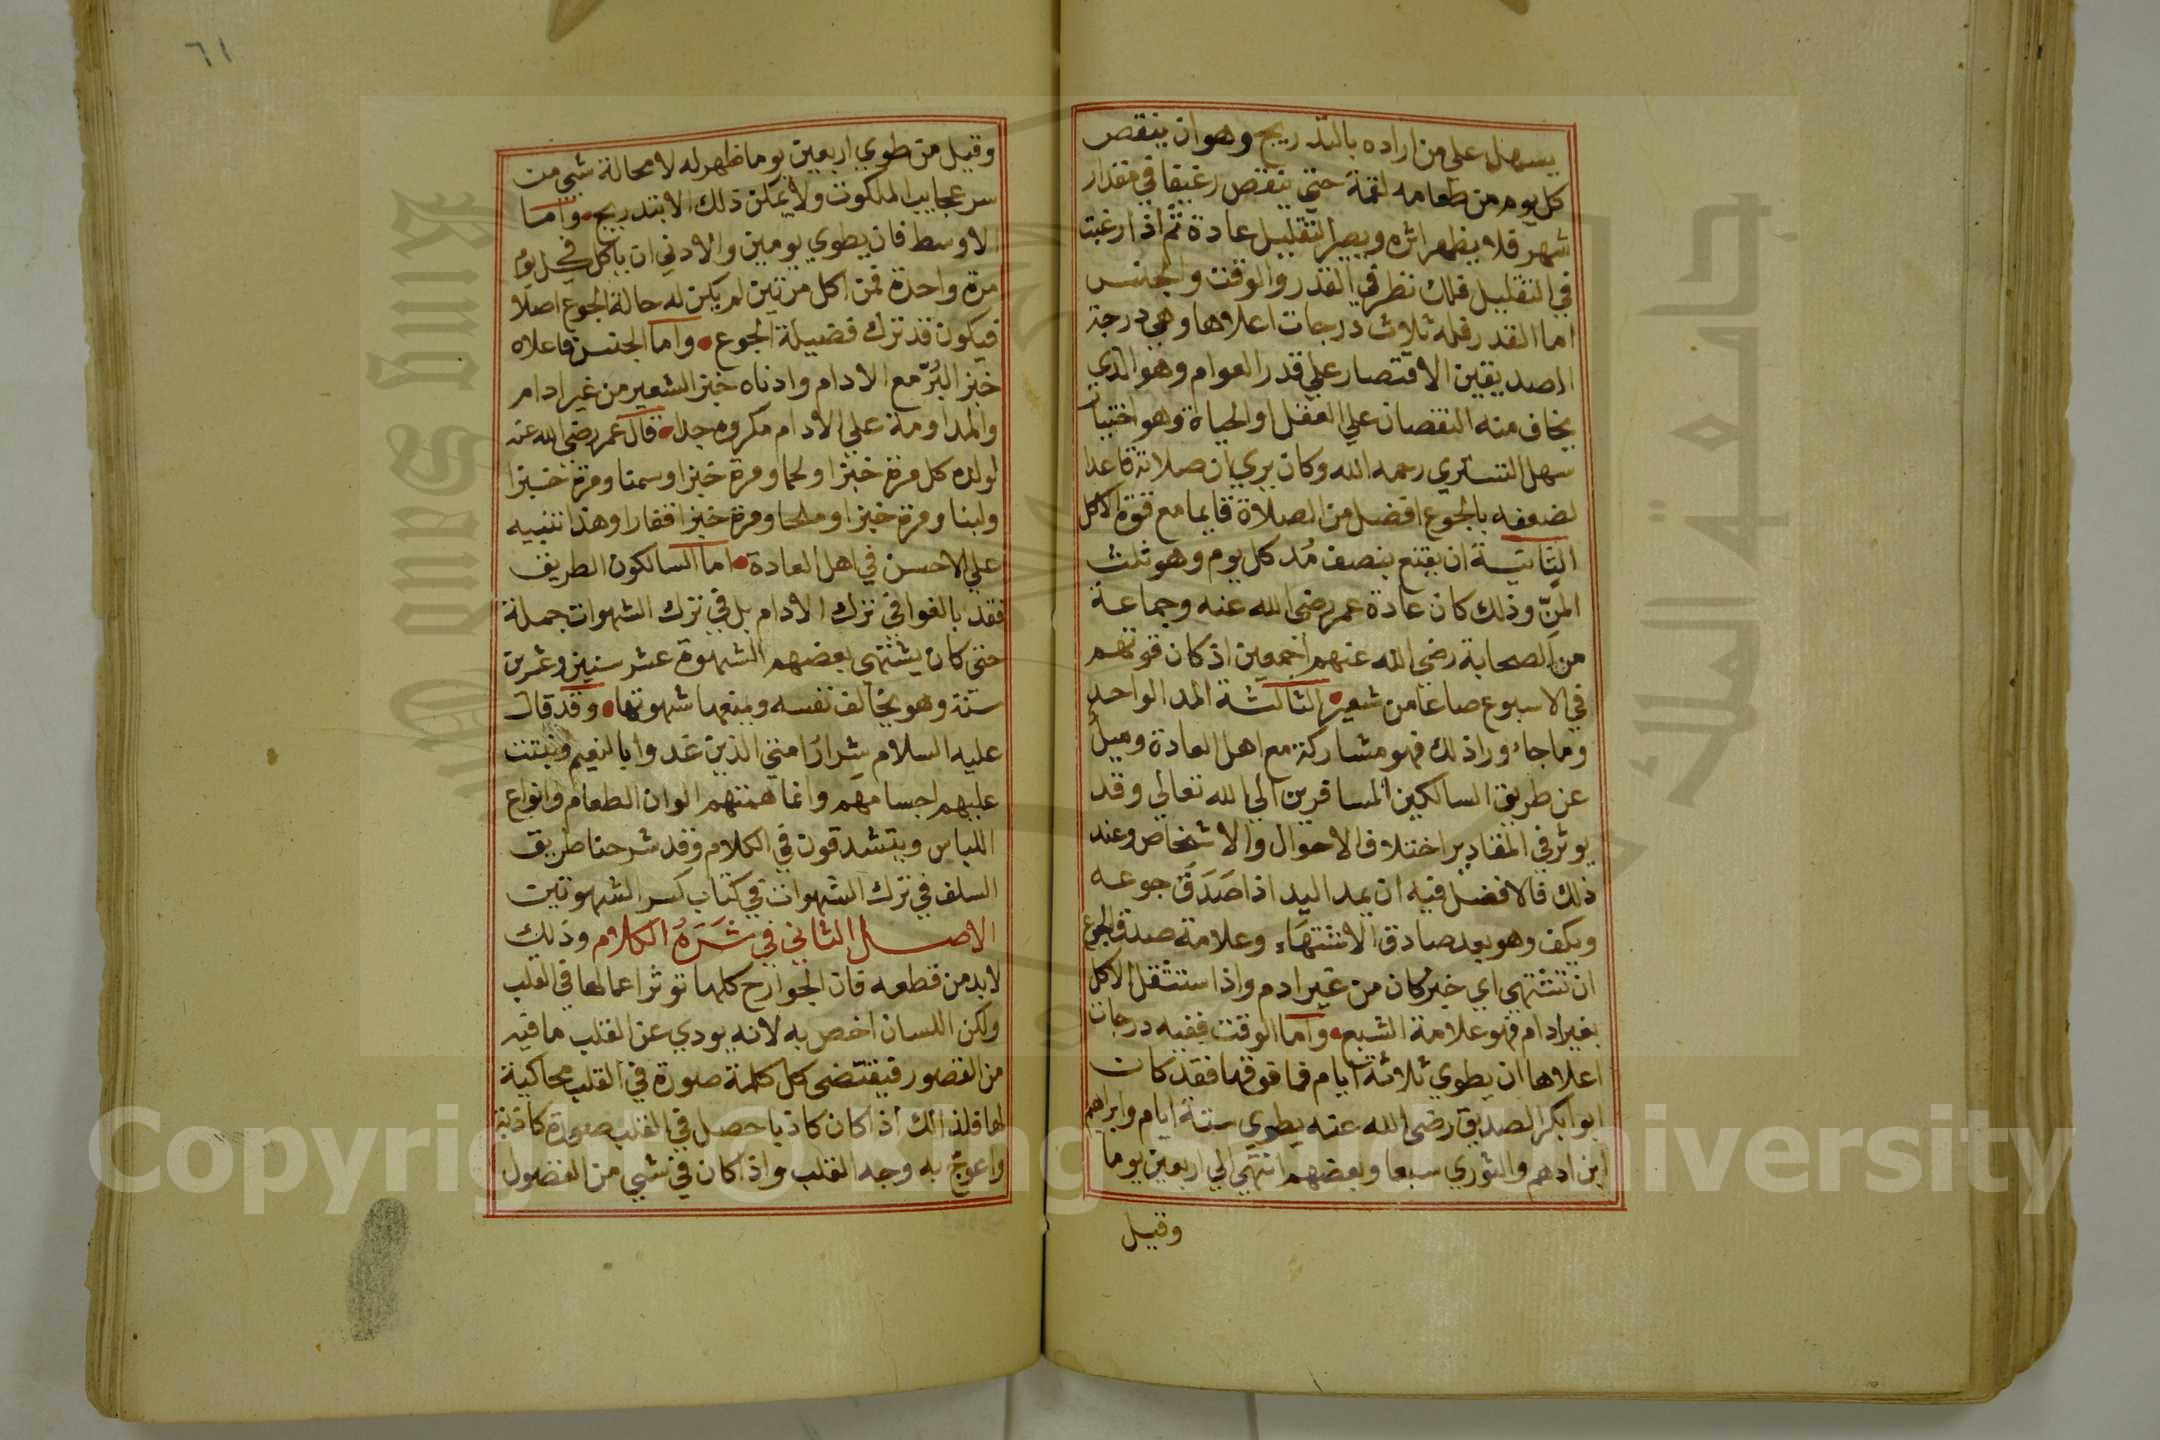 يسهل علي من اراده بالتدريج وهو ان ينقص
كل يوم من طعامه لقمة حتي ينقص رغيفا في مقدار
شهر فلا يظهر اثره ويصير التقليل عادة ثم اذا رغبت
في التقليل فلك نظر في القدر والوقت والجنس
اما القدر فله ثلاث درجات اعلاها وهي درجة
الصديقين الاقتصار علي قدر العوام وهو الذي
يخاف منه النقصان علي العقل او الحياة وهو اختيار
سهل التستري رحمه الله وكان يري ان صلاته قاعدا
لضعفه بالجوع افضل من الصلاة قايما مع قوة الاكل
الثانية ان يقنع بنصف مُد كل يوم وهو ثلث
المنّ وذلك كان عادة عمر رضي الله عنه وجماعة
من الصحابة رضي الله عنهم اجمعين اذ كان قوتهم
في الاسبوع صاعا من شعير الثالثة المد الواحد
وما جاء وراذلك فهو مشاركة مع اهل العادة وميلُ
عن طريق السالكين المسافرين الي الله تعالي وقد
يوثر في المقادير اختلاف الاحوال والاشخاص وعند
ذلك فالافضل فيه ان يمد اليد اذا صَدَقَ جوعه
ويكف وهو بعد صادق الاشتهاء وعلامة صدق الجوع
ان تشتهي اي خبز كان من غير ادم واذا ستثقل الاكل
بغير ادام فهو علامة الشبع واما الوقت ففيه درجات
اعلاها ان يطوي ثلاثة ايام فما فوقها فقد كان
ابو ابكر الصديق رضي الله عنه يطوي ستة ايام وابراهيم
ابن ادهم والثوري سبعا وبعضهم انتهي الي اربعين يوما
وقيل
٦١
وقيل من طوي اربعين يوما ظهر له لا محالة شيي من
سر عجايب الملكوت ولا يمكن ذلك الا بتدريج واما
الاوسط فان يطوي يومين والادني ان ياكل في كل يوم
مرة واحدة فمن اكل مرتين لم يكن له حالة الجوع اصلا
فيكون قد ترك فضيلة الجوع واما الجنس فاعلاه
خبز البُرّ مع الادام وادناه خبز الشعير من غير ادام
والمداومة علي الادام مكروه جدا قال عمر رضي الله عنه
لولده كل مرة خبزا ولحما ومرة خبزا وسمنا ومرة خبزا
ولبنا ومرة خبزا وملحا ومرة خبزا قفارا وهذا تنبيه
علي الاحسن في اهل العادة اما السالكون الطريق
فقد بالغوا في ترك الادام بل في ترك الشهوات جملة
حتي كان يشتهي بعضهم الشهوة عشر سنين وعشرين
سنة وهو يخالف نفسه ويمنعها شهوتها وقد قال
عليه السلام شِرارَ امتي الذين غدوا بالنعيم ونبتت
عليهم اجسامهم وانما همتهم الوان الطعام وانواع
اللباس ويتشدقون في الكلام وقد شرحنا طريق
السلف في ترك الشهوات في كتاب كسر الشهوتين
الاصل الثاني في شَرَهُ الكلام وذلك
لابد من قطعه فان الجوارح كلها توثر اعمالها في القلب
ولكن اللسان اخص به لانه يودي عن القلب ما فيه
من القصور فيقتضي كل كلمة صورة في القلب محاكية
لها فلذالك اذا كان كاذبا حصل في القلب صورة كاذبة
واعوجّ به وجه القلب واذا كان في شيي من الفضول
King Saud University
جامعة الملك
Copyright © King Saud University